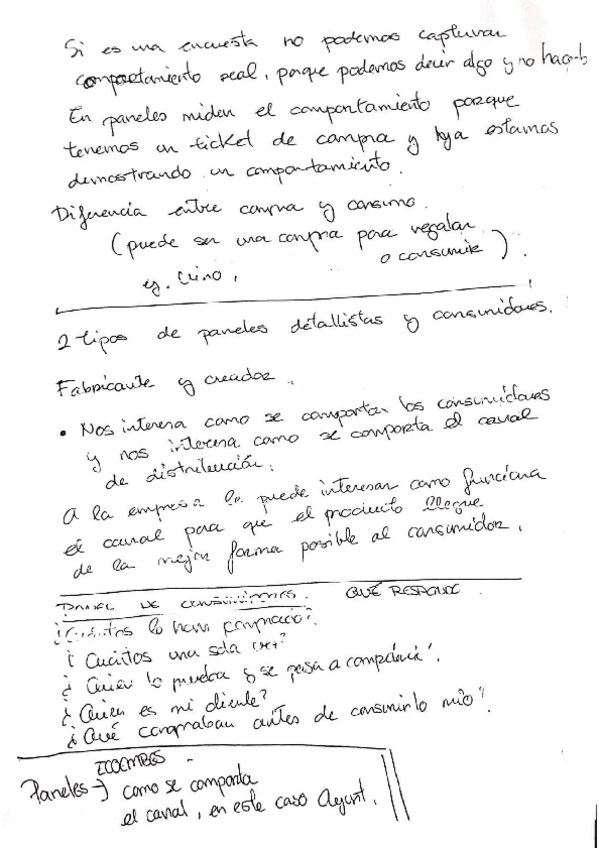 Si es una encuesta no podemos capturar
comportamiento real, porque podemos decir algo y no hacerlo
En paneles miden el comportamiento porque
tenemos un ticket de compra y ya estamos
demostrando un comportamiento.
Diferencia entre compra y consumo.
(puede ser una compra para regalar
o consumir).
ej.
2 tipos de paneles detallistas y consumidores.
Fabricante y creador.
• Nos interesa como se comportan los consumidores
y nos interesa como se comporta el canal
de distribución.
A la empresa le puede interesar como funciona
el canal para que el producto llegue
de la mejor forma posible al consumidor.
PANEL DE CONSUMIDORES. QUÉ RESPONDE.
¿Cuántos lo han comprado?
¿Cuántos una sola vez?
¿Quien lo prueba y se pasa a competencia?
¿Quien es mi cliente?
¿Qué compraban antes de consumirlo mío?
Paneles → como se comporta
el canal, en este caso